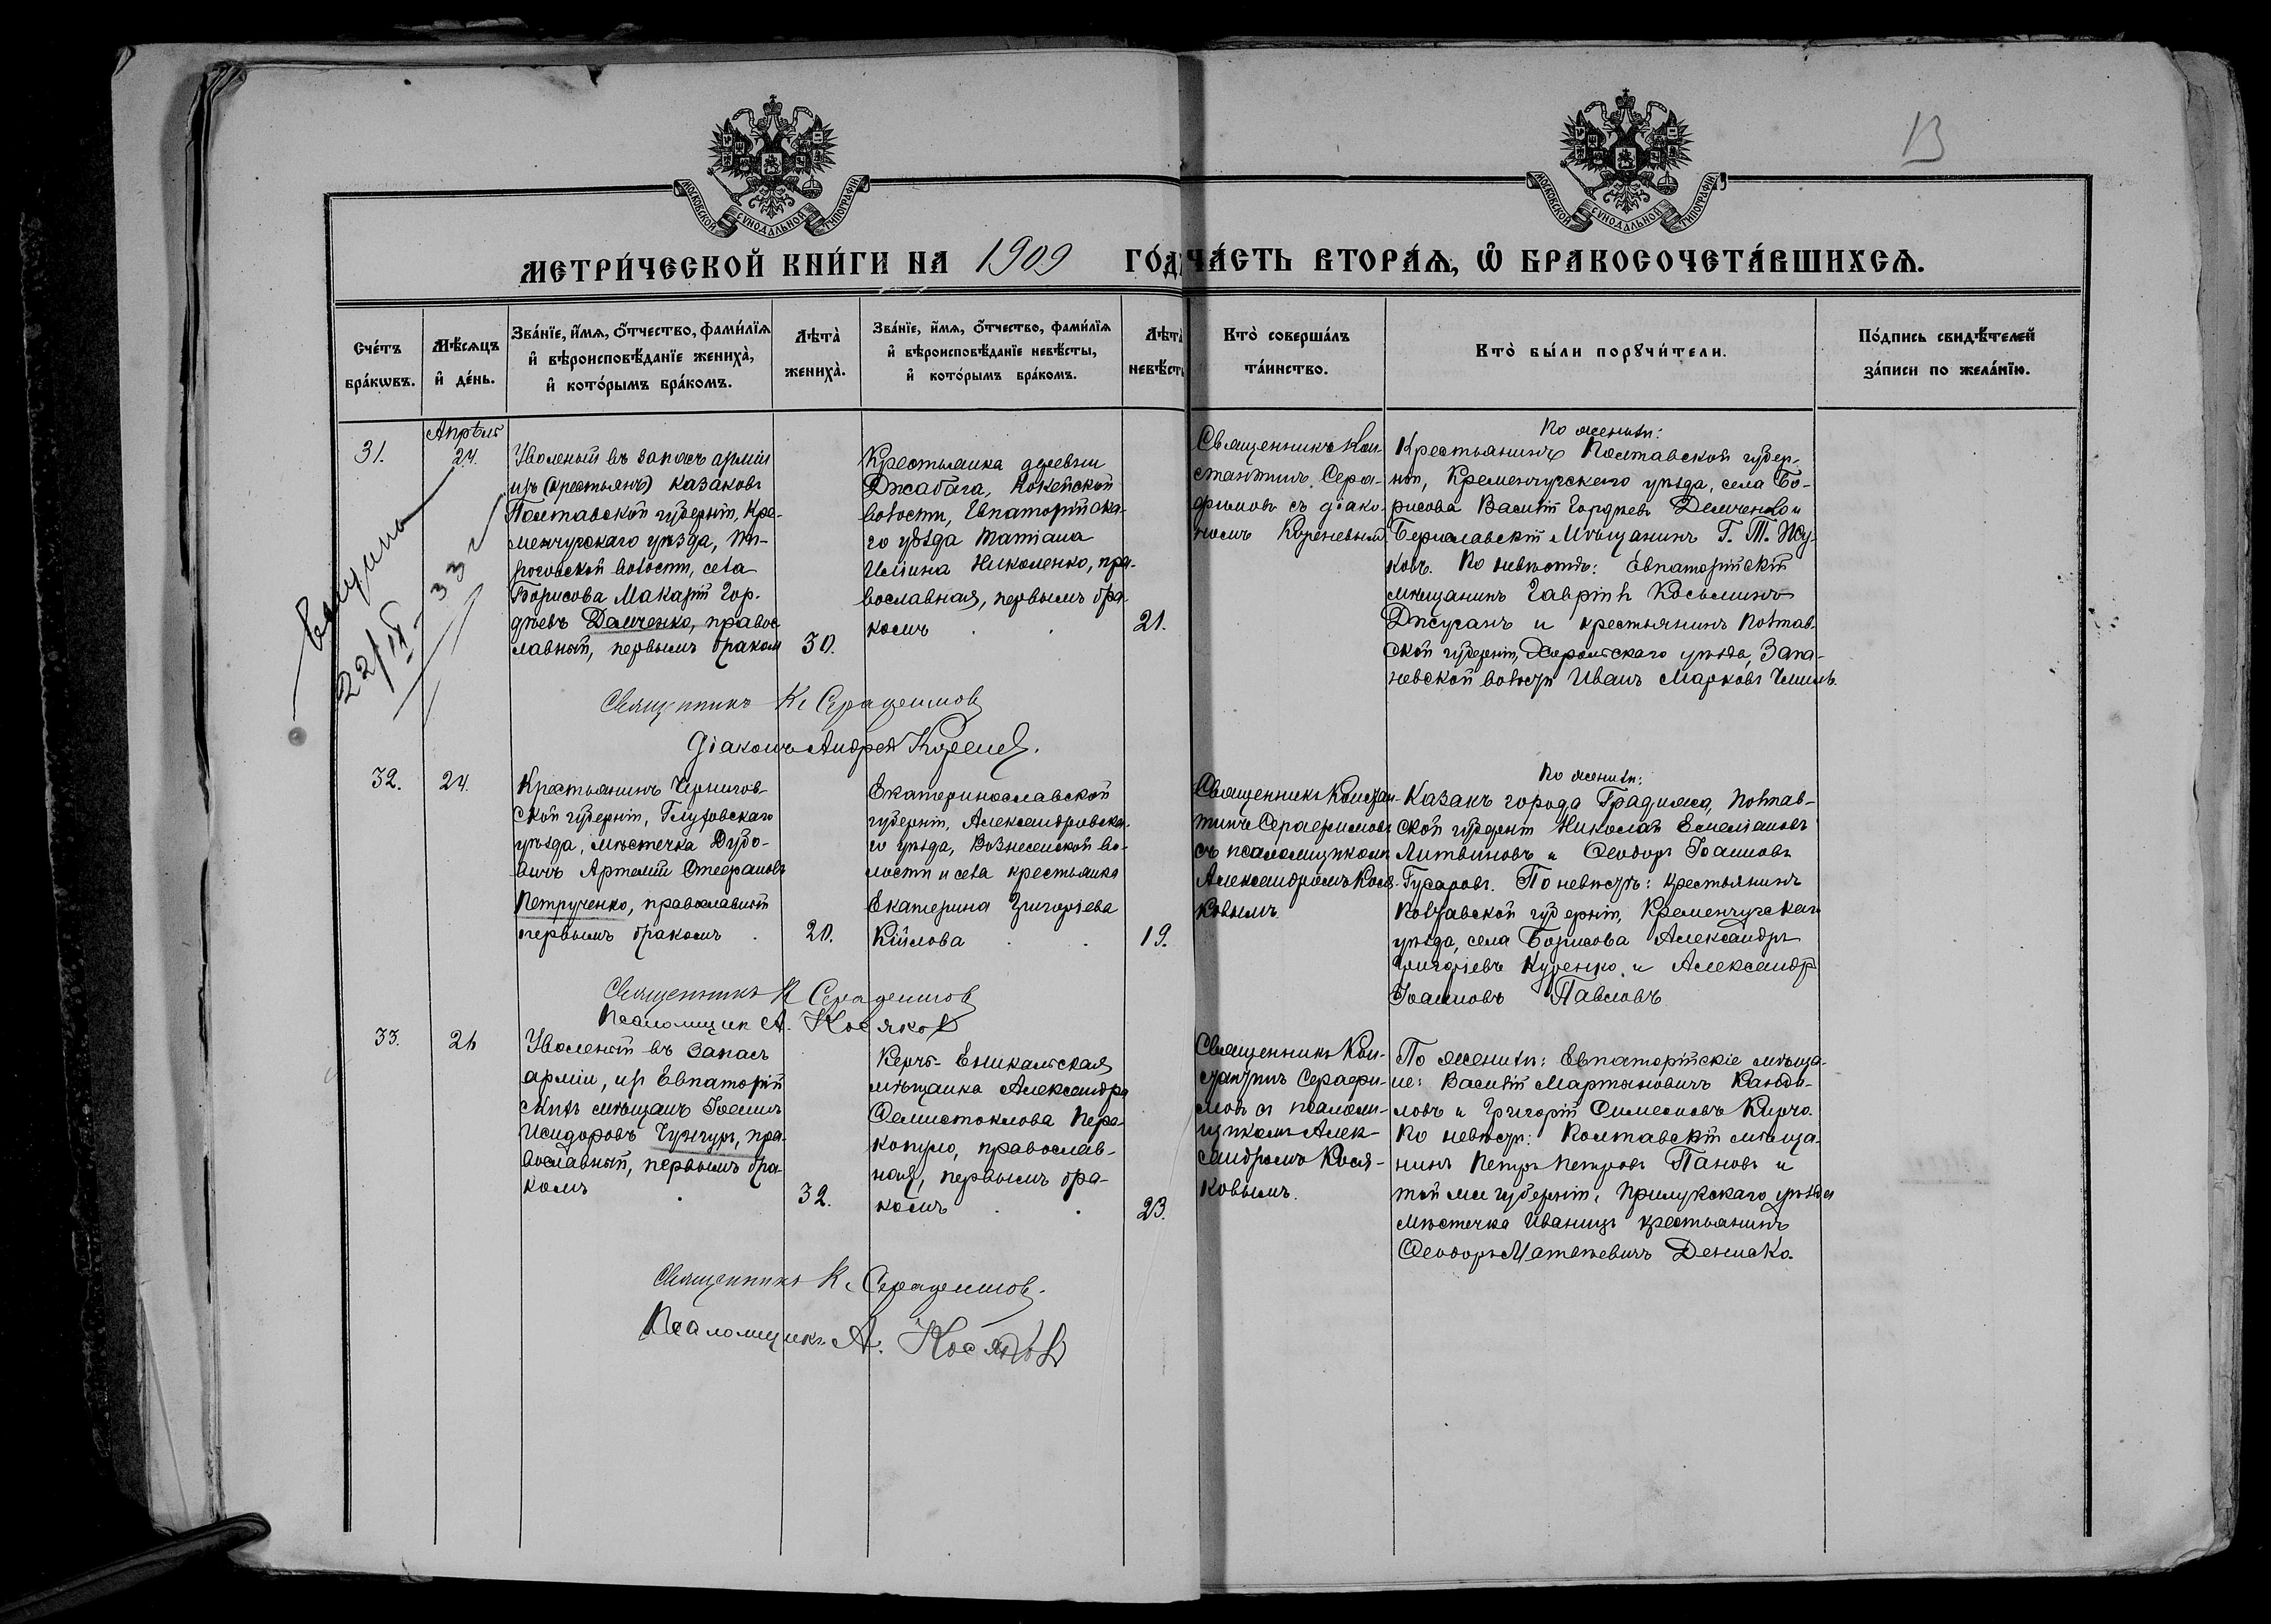 13
МОСКОВСКОЙ СУНОДАЛЬНОЙ ТИПОГРАФІИ
МОСКОВСКОЙ СУНОДАЛЬНОЙ ТИПОГРАФІИ
МЕТРИ́ЧЕСКОЙ КНИ́ГИ НА 1909 ГО́Д ЧА́СТЬ ВТОРА́Я, Ѡ БРАКОСОЧЕТА́ВШИХСЯ.
Сче́тъ
бра́кѡвъ.
Мѣ́сяцъ
и҆ де́нь.
Зва́нїе, и҆́мя, ѻ҆́тчество, фами́лїя
и҆ вѣроисповѣ́данїе жениха̀,
и҆ кото́рымъ бра́комъ.
Лѣта̀
жениха̀.
Зва́нїе, и҆́мя, ѻ҆́тчество, фами́лїя
и҆ вѣроисповѣ́данїе невѣ́сты,
и҆ кото́рымъ бра́комъ.
Лѣта̀
невѣ́сты
Кто̀ соверша́лъ
та́инство.
Кто̀ бы́ли порꙋчи́тели.
По́дпись свидѣ́телей
за́писи по жела́нїю.
31.
Апрѣль
24.
22/IX 33 г
Уволеный въ запасъ арміи
изъ (крестьянъ) казаковъ
Полтавской губерніи, Кре-
менчугскаго уѣзда, Пи-
роговской волости, села
Борисова Макарій Гор-
дѣевъ Демченко, правос
лавный, первымъ бракомъ
30.
Крестьянка деревни
Джабага, Кокейской
волости, Евпаторійска-
го уѣзда Татіана
Иліина Николенко, пра-
вославная, первымъ бра-
комъ
21.
Священникъ Кон-
стантинъ Сера-
фимовъ съ діако-
номъ Кореневымъ
По жениху:
Крестьянинъ Полтавской губер-
ніи, Кременчугскаго уѣзда, села Бо-
рисова Василій Гордѣевъ Демченко и
Бериславскій мѣщанинъ Г. Т. Жу-
ковъ. По невѣстѣ: Евпаторійскій
мѣщанинъ Гавріилъ Косьминъ
Джуганъ и крестьянинъ Полтав-
ской губерніи, Хорольскаго уѣзда,
волости Иванъ Марковъ
Священникъ К. Серафимовъ
Діаконъ Андрей Кореневъ.
32.
24.
Крестьянинъ Чернигов-
ской губерніи, Глуховскаго
уѣзда, мѣстечка Дубо-
вичъ Артемій Стефановъ
Петрученко, православный
первымъ бракомъ
20.
Екатеринославской
губерніи, Александровска-
го уѣзда, Вознесенской во-
лости и села крестьянка
Екатерина Григоріева
Кійлова
19.
Священникъ Констан-
тинъ Серафимовъ
съ псаломщикомъ
Александромъ Кося-
ковымъ
По жениху:
Казакъ города Градижска, Полтав-
ской губерніи Николай Емеліановъ
Литвиновъ и Ѳеодоръ Іоанновъ
Гусаровъ. По невѣстѣ: крестьянинъ
Полтавской губерніи, Кременчугскаго
уѣзда, села Борисова Александръ
Григоріевъ Куренко и Александръ
Іоанновъ Павловъ
Священникъ К Серафимовъ
Псаломщик А. Косяков
33.
26
Уволеный въ запасъ
арміи, изъ Евпаторій
скихъ мѣщанъ Іоаннъ
Исидоровъ Чунчуръ, пра-
вославный, первымъ бра-
комъ
32.
Керчь-Еникальская
мѣщанка Александра
Ѳемистоклова Пера-
копуло, православ-
ная, первымъ бра-
комъ
23.
Священникъ Кон-
стантинъ Серафи-
мовъ съ псалом-
щикомъ Алек-
сандромъ Кося-
ковымъ.
По жениху: Евпаторійскіе мѣща-
не: Василій Мартыновичъ
и Григорій Симеоновъ Кирчо.
По невѣстѣ: Полтавскій мѣща-
нинъ Петръ Петровъ Пановъ и
той же губерніи, Прилукскаго уѣзда
мѣстечка Иваницъ крестьянинъ
Ѳеодоръ Матвѣевичъ Дениско.
Священникъ К. Серафимовъ.
Псаломщикъ А. Косяковъ